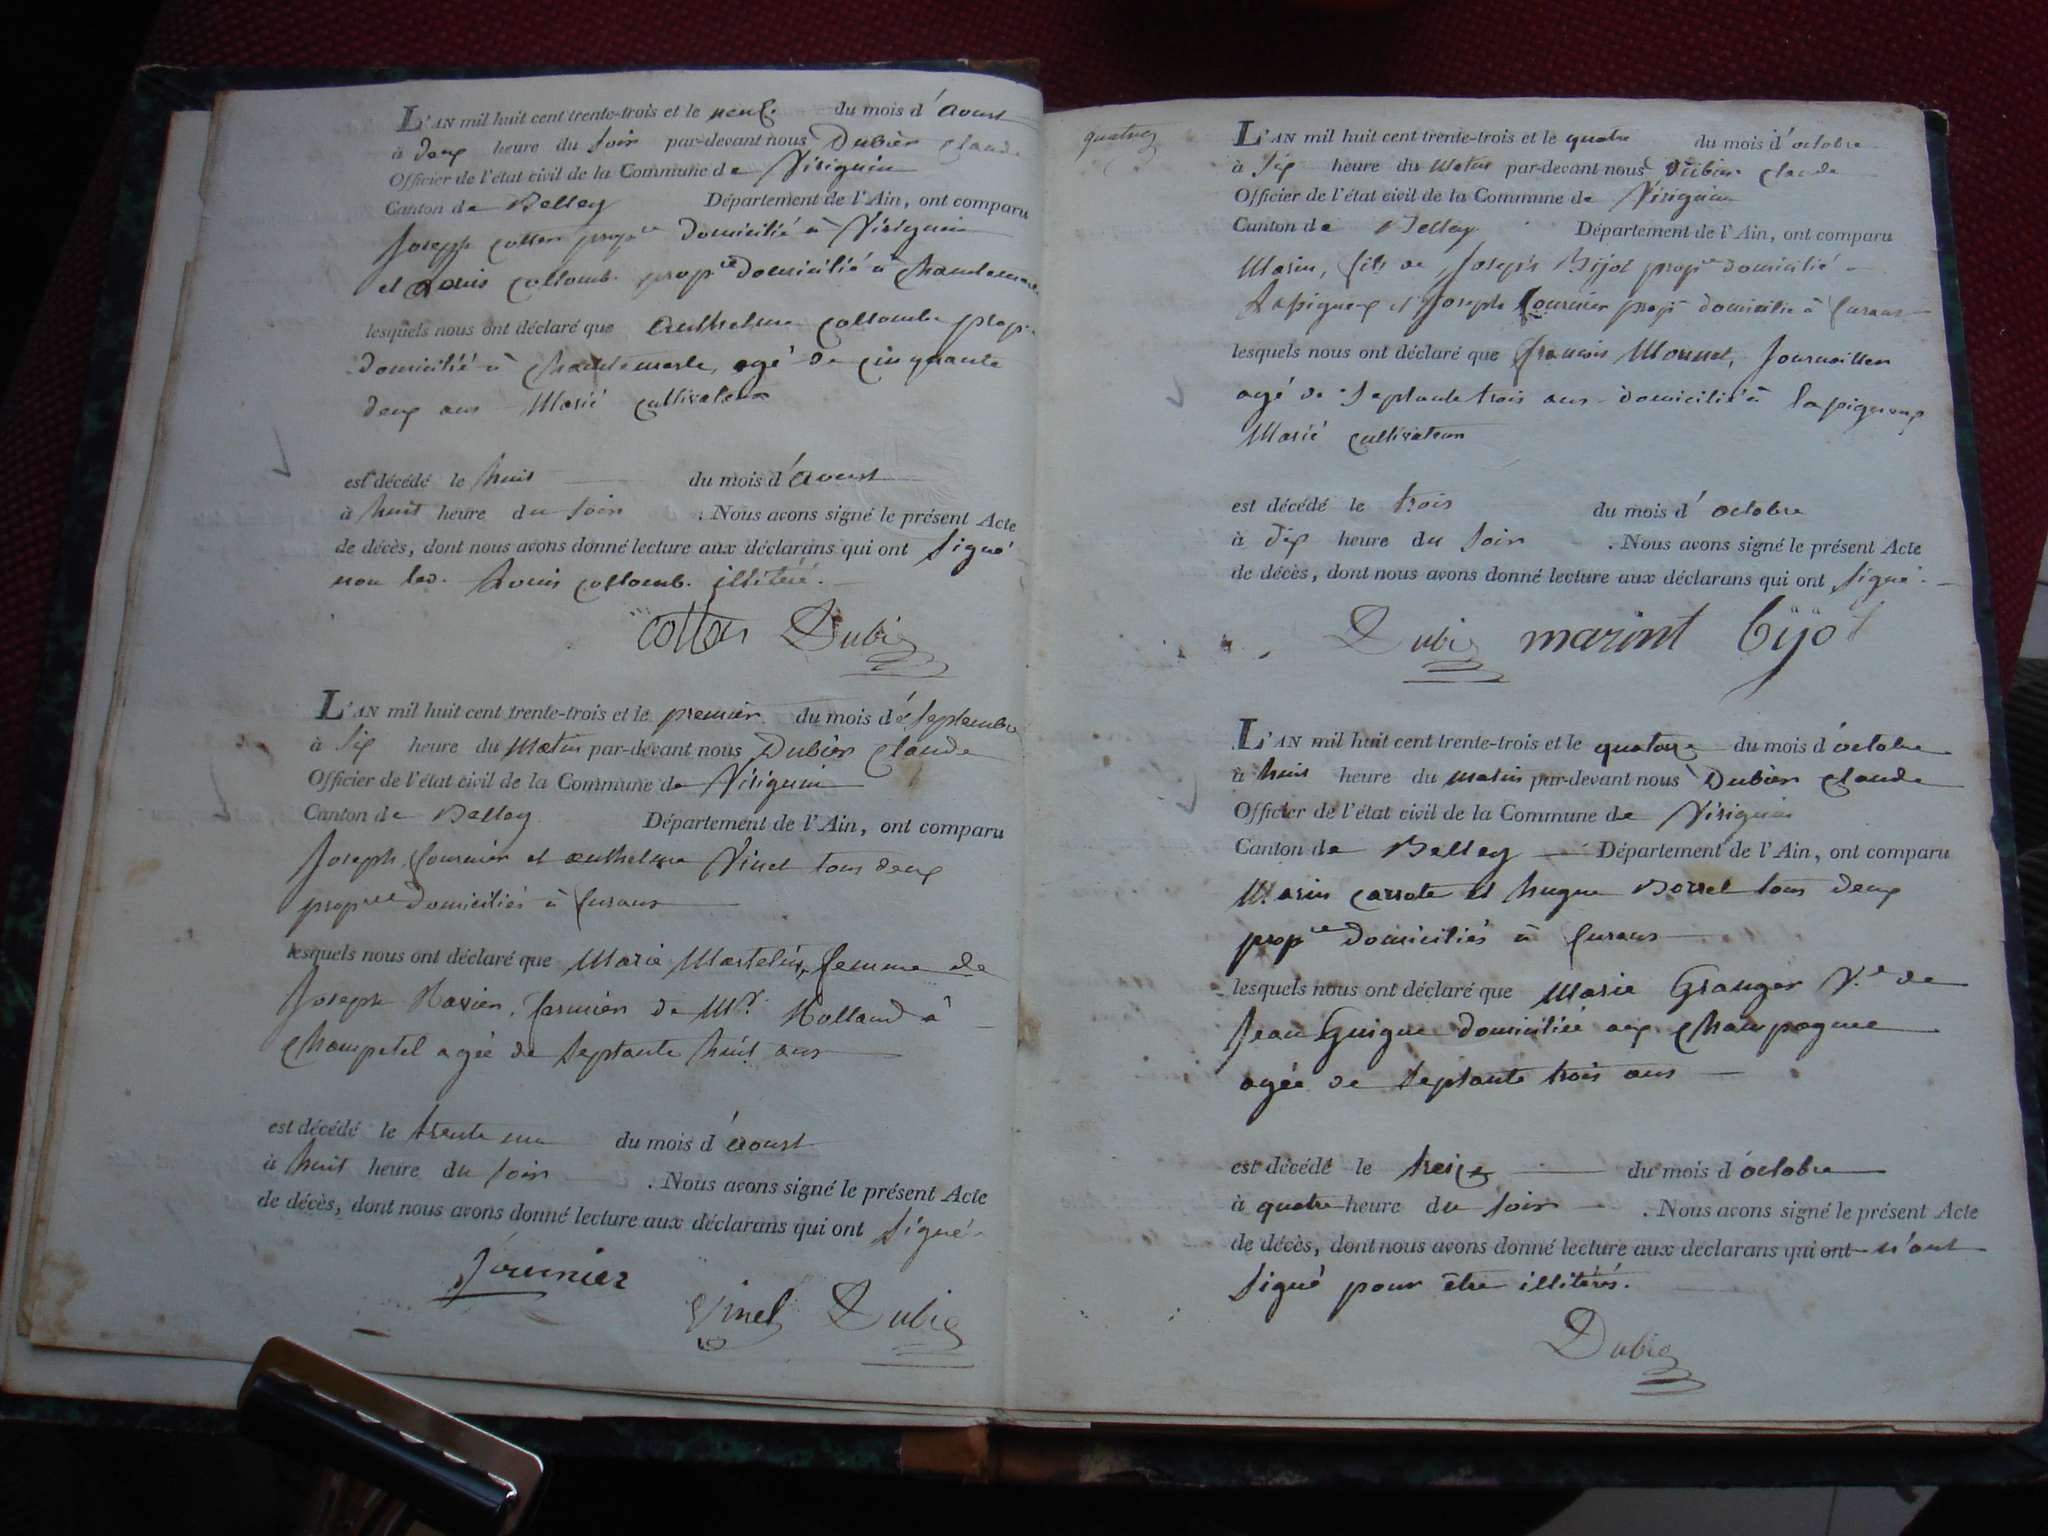 L'AN mil huit cent trente-trois et le neuf du mois d'Aoust
à deux heure du soir par-devant nous Dubier Claude
Officier de l'état civil de la Commune de Virignin
Canton de Belley Département de l'Ain, ont comparu
Joseph propre domicilié à Virignin
et Louis Collomb propre domicilié à Chantemerle
lesquels nous ont déclaré que Anthelme Collombe prop
domicilié à Chantemerle, agé de cinquante
deux ans Marié cultivateur
est décédé le huit du mois d'Aoust
à huit heure du soir . Nous avons signé le présent Acte
de décès, dont nous avons donné lecture aux déclarans qui ont signé
non led. Louis Collomb. illitéré.
Dubie
L'AN mil huit cent trente-trois et le premier du mois de Septembre
à six heure du Matin par-devant nous Dubier Claude
Officier de l'état civil de la Commune de Virignin
Canton de Belley Département de l'Ain, ont comparu
Joseph fournier et anthelme Vinet tous deux
propres domiciliés à furans
lesquels nous ont déclaré que Marie Martelin, femme de
Joseph Ravier, farmier de Mr. Rolland à
Champetel agée de septante huit ans
est décédé le trente un du mois d'aoust
à huit heure du soir . Nous avons signé le présent Acte
de décès, dont nous avons donné lecture aux déclarans qui ont signé
fournier
Vinet Dubie
quatre
L'AN mil huit cent trente-trois et le quatre du mois d'octobre
à six heure du Matin par-devant nous Dubier Claude
Officier de l'état civil de la Commune de Virignin
Canton de Belley Département de l'Ain, ont comparu
Marin, fils de Joseph Bijot propre domicilié
et Joseph fournier prop domicilié à furans
lesquels nous ont déclaré que françois Monnet, Journaillier
agé de septante trois ans domicilié à
Marié cultivateur
est décédé le trois du mois d'octobre
à dix heure du soir . Nous avons signé le présent Acte
de décès, dont nous avons donné lecture aux déclarans qui ont signé
Dubie marint bijot
L'AN mil huit cent trente-trois et le quatorze du mois d'octobre
à huit heure du matin par-devant nous Dubier Claude
Officier de l'état civil de la Commune de Virignin
Canton de Belley Département de l'Ain, ont comparu
Marin carrote et hugue Borrel tous deux
propre domiciliés à furans
lesquels nous ont déclaré que Marie Granger Ve. de
Jean Guigue domiciliée aux Champagne
agée de septante trois ans
est décédé le treize du mois d'octobre
à quatre heure du soir . Nous avons signé le présent Acte
de décès, dont nous avons donné lecture aux déclarans qui ont n'ont
signé pour être illitérés.
Dubie